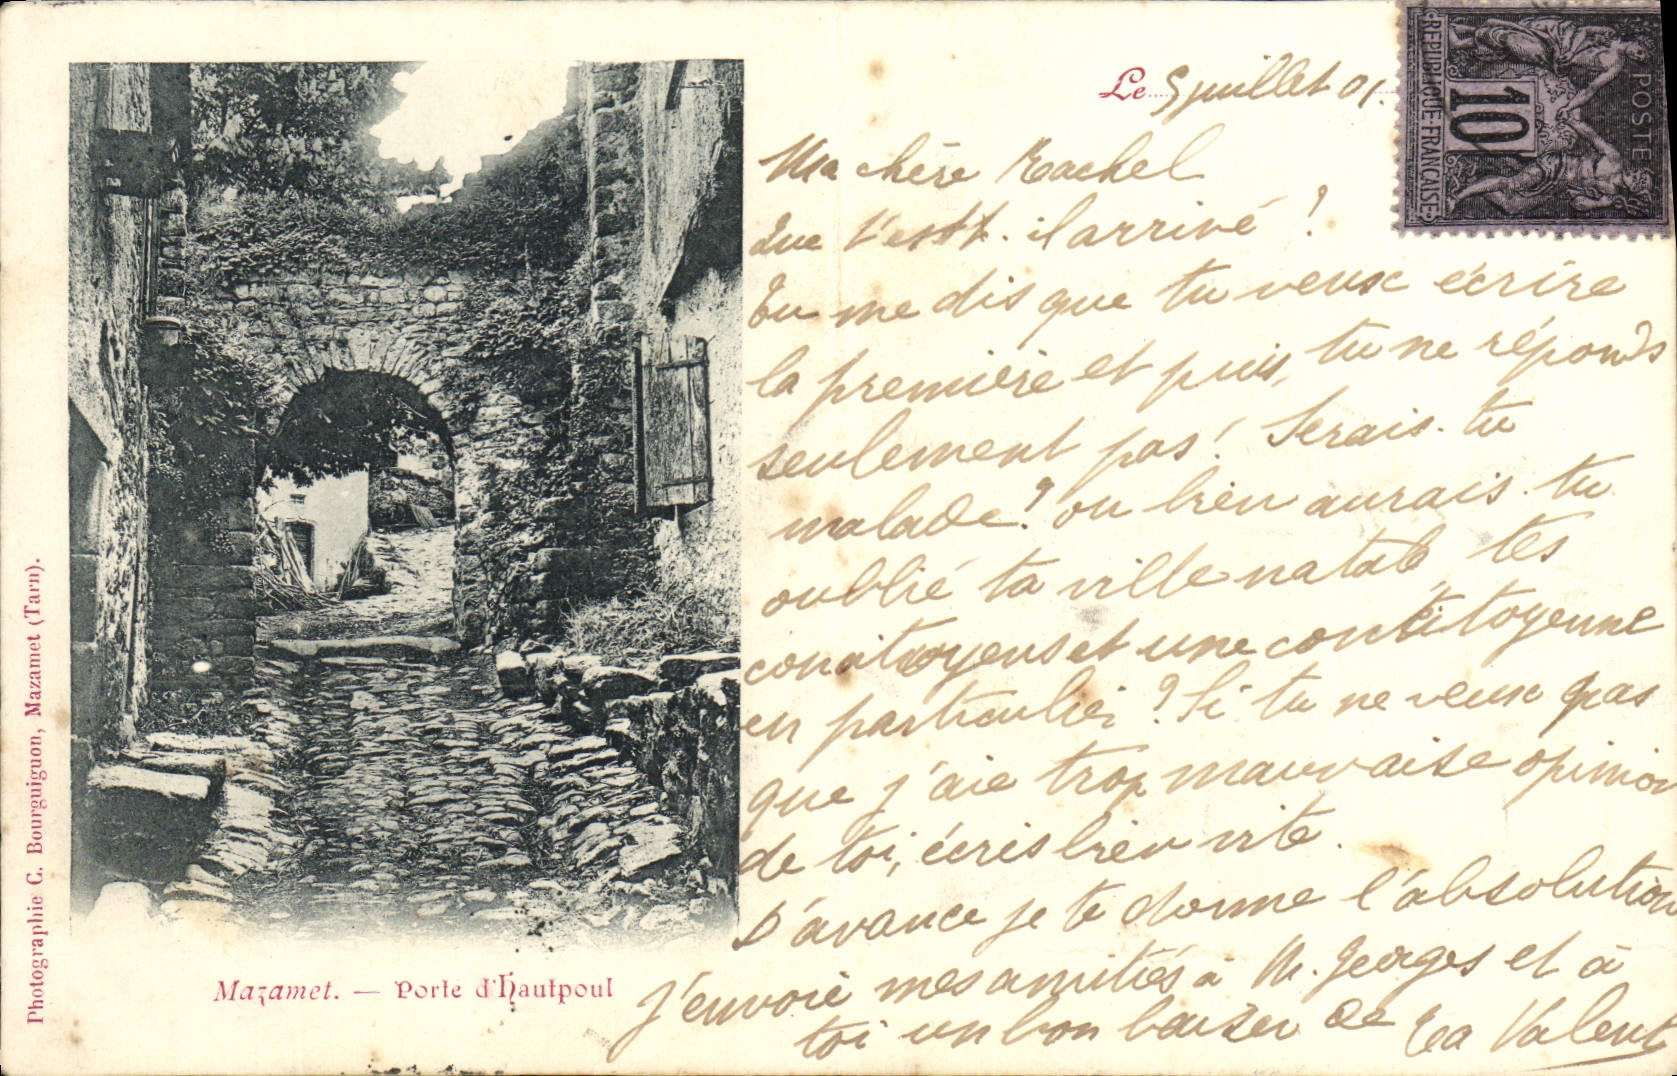 Le 5 juillet 01.
RÉPUBLIQUE FRANÇAISE
10
POSTE
Ma chère Rachel
Que t'est-il arrivé ?
Tu me dis que tu veux écrire
la première et puis, tu ne réponds
seulement pas ! Serais-tu
malade ? ou bien aurais-tu
oublié ta ville natale tes
concitoyens et une concitoyenne
en particulier ? Si tu ne veux pas
que j'aie trop mauvaise opinion
de toi, écris bien vite.
D'avance je te donne l'absolution
J'envoie mes amitiés à M. Georges et à
toi un bon baiser de Ta Valent
Mazamet. — Porte d'Hautpoul
Photographie C. Bourguignon, Mazamet (Tarn).